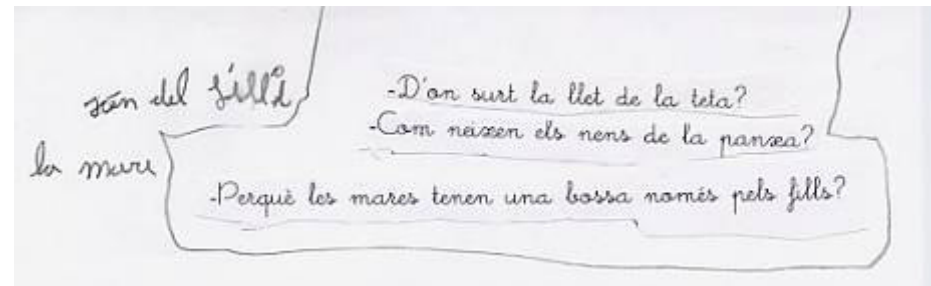 són del fill i
la mare
-D'on surt la llet de la teta?
-Com neixen els nens de la panxa?
-Perquè les mares tenen una bossa només pels fills?